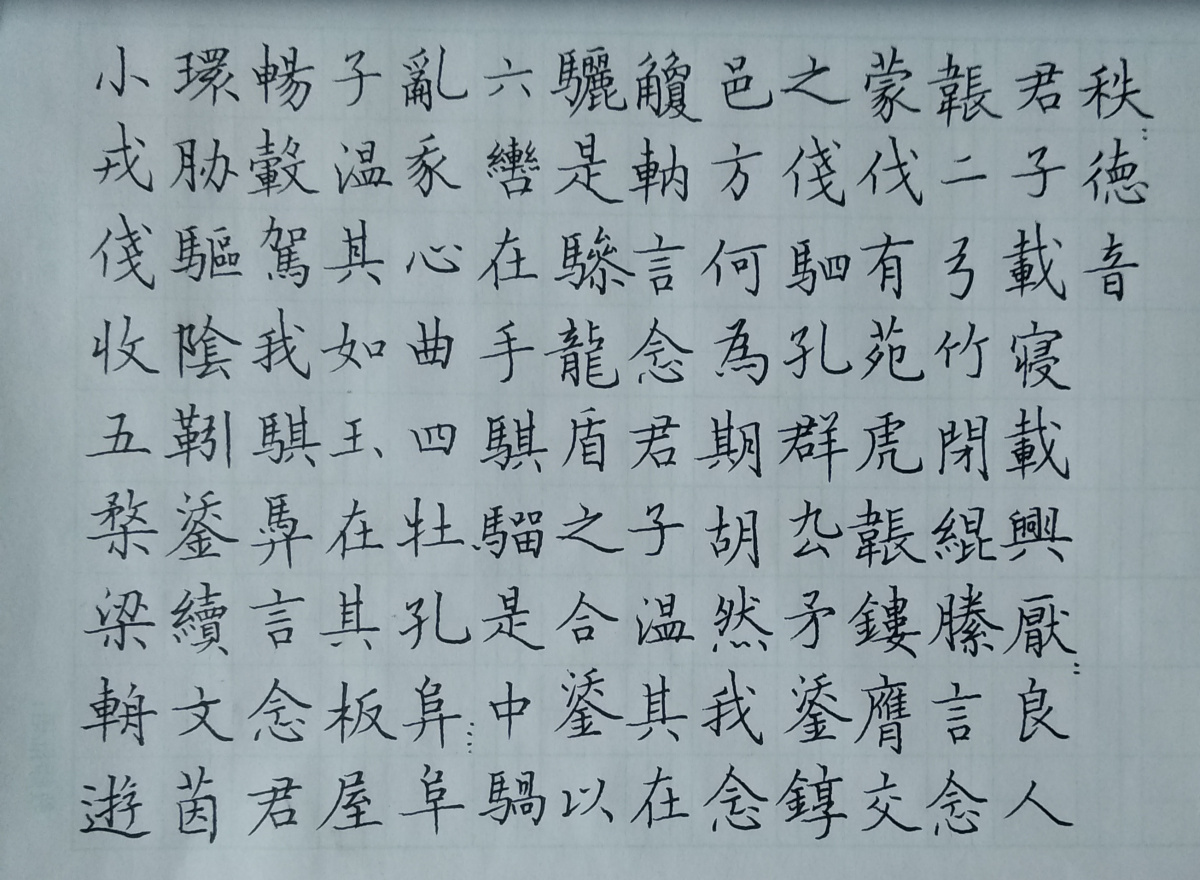 小戎俴收五楘梁輈遊
環胁驅陰靷鋈續文茵
暢轂駕我騏馵言念君
子温其如玉在其板屋
亂豕心曲四牡孔阜阜
六轡在手騏騮是中騧
驪是驂龍盾之合鋈以
觼軜言念君子温其在
邑方何為期胡然我念
之俴駟孔群厹矛鋈錞
蒙伐有苑虎韔鏤膺交
韔二弓竹閉緄縢言念
君子載寝載興厭良人
秩德音